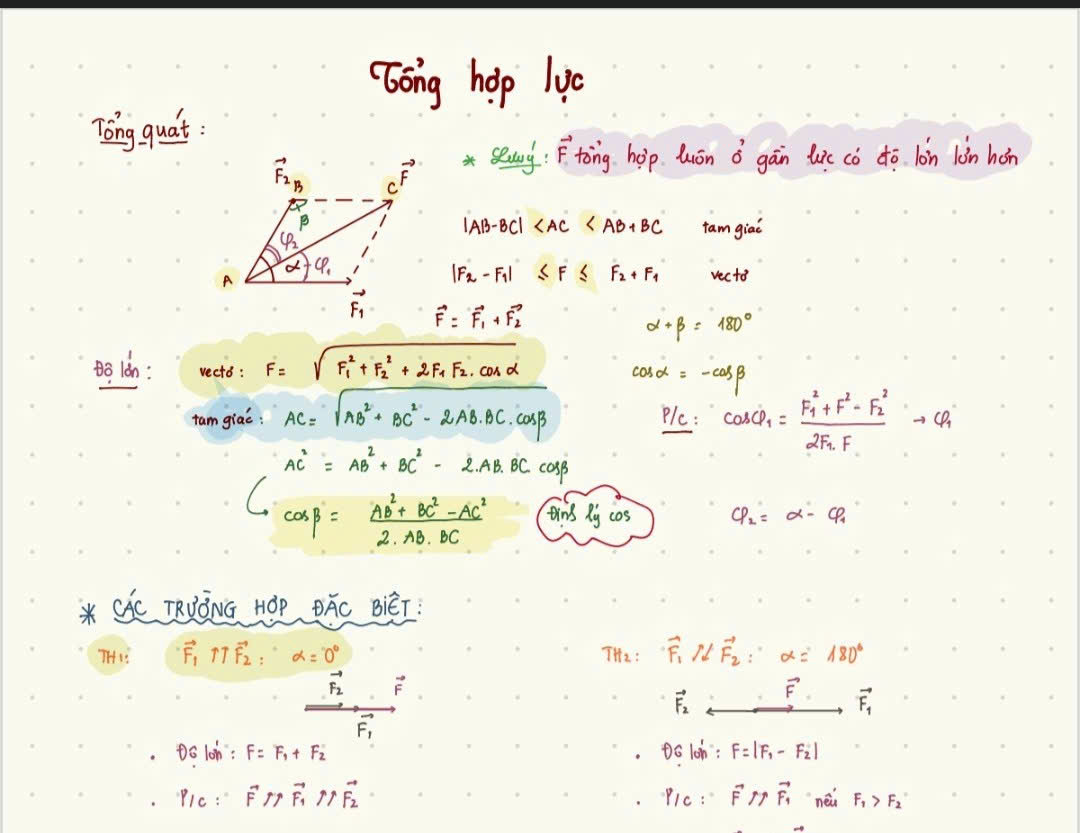 Tổng hợp lực
Tổng quát :
* Lưu ý : F⃗ tổng hợp luôn ở gần lực có độ lớn lớn hơn
F⃗₂ B C F⃗
β
φ₂
A α φ₁
F⃗₁
|AB-BC| < AC < AB + BC tam giác
|F₂ - F₁| ≤ F ≤ F₂ + F₁ vectơ
F⃗ = F⃗₁ + F⃗₂
α + β = 180°
Độ lớn : vectơ : F = √(F₁² + F₂² + 2F₁F₂.cos α)
cosα = -cosβ
tam giác : AC = √(AB² + BC² - 2AB.BC.cosβ)
P/c : cosφ₁ = (F₁² + F² - F₂²)/(2F₁.F) → φ₁
AC² = AB² + BC² - 2.AB.BC.cosβ
cosβ = (AB² + BC² - AC²)/(2.AB.BC)
Định lý cos
φ₂ = α - φ₁
* CÁC TRƯỜNG HỢP ĐẶC BIỆT :
TH1: F⃗₁ ↑↑ F⃗₂ : α = 0°
F⃗₂ F⃗
F⃗₁
. Độ lớn : F = F₁ + F₂
. P/c : F⃗ ↑↑ F⃗₁ ↑↑ F⃗₂
TH2: F⃗₁ ↑↓ F⃗₂ : α = 180°
F⃗₂ F⃗ F⃗₁
. Độ lớn : F = |F₁ - F₂|
. P/c : F⃗ ↑↑ F⃗₁ nếu F₁ > F₂